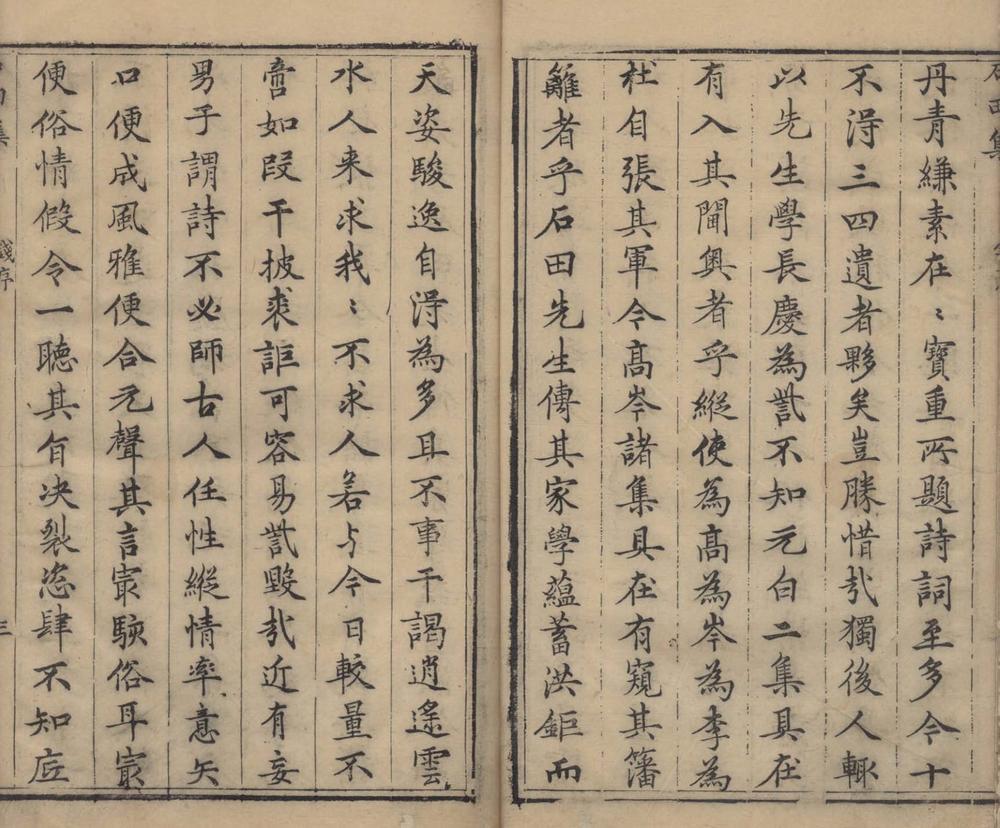 丹青縑素在〻寶重所題詩詞至多今十
不淂三四遺者夥矣豈勝惜㢤獨後人輙
以先生學長慶為訾不知元白二集具在
有入其閫奥者乎縱使為髙為岑為李為
杜自張其軍今髙岑諸集具在有窺其籓
籬者乎石田先生傳其家學蘊蓄洪鉅而
天姿駿逸自淂為多且不事干謁逍遙雲
水人来求我〻不求人若与今日較量不
啻如段干披裘詎可容易訾毀㢤近有妄
男子謂詩不必師古人任性縱情率意矢
口便成風雅便合元聲其言㝡駭俗耳㝡
便俗情假令一聽其自决裂恣肆不知底
石田集
錢序
三